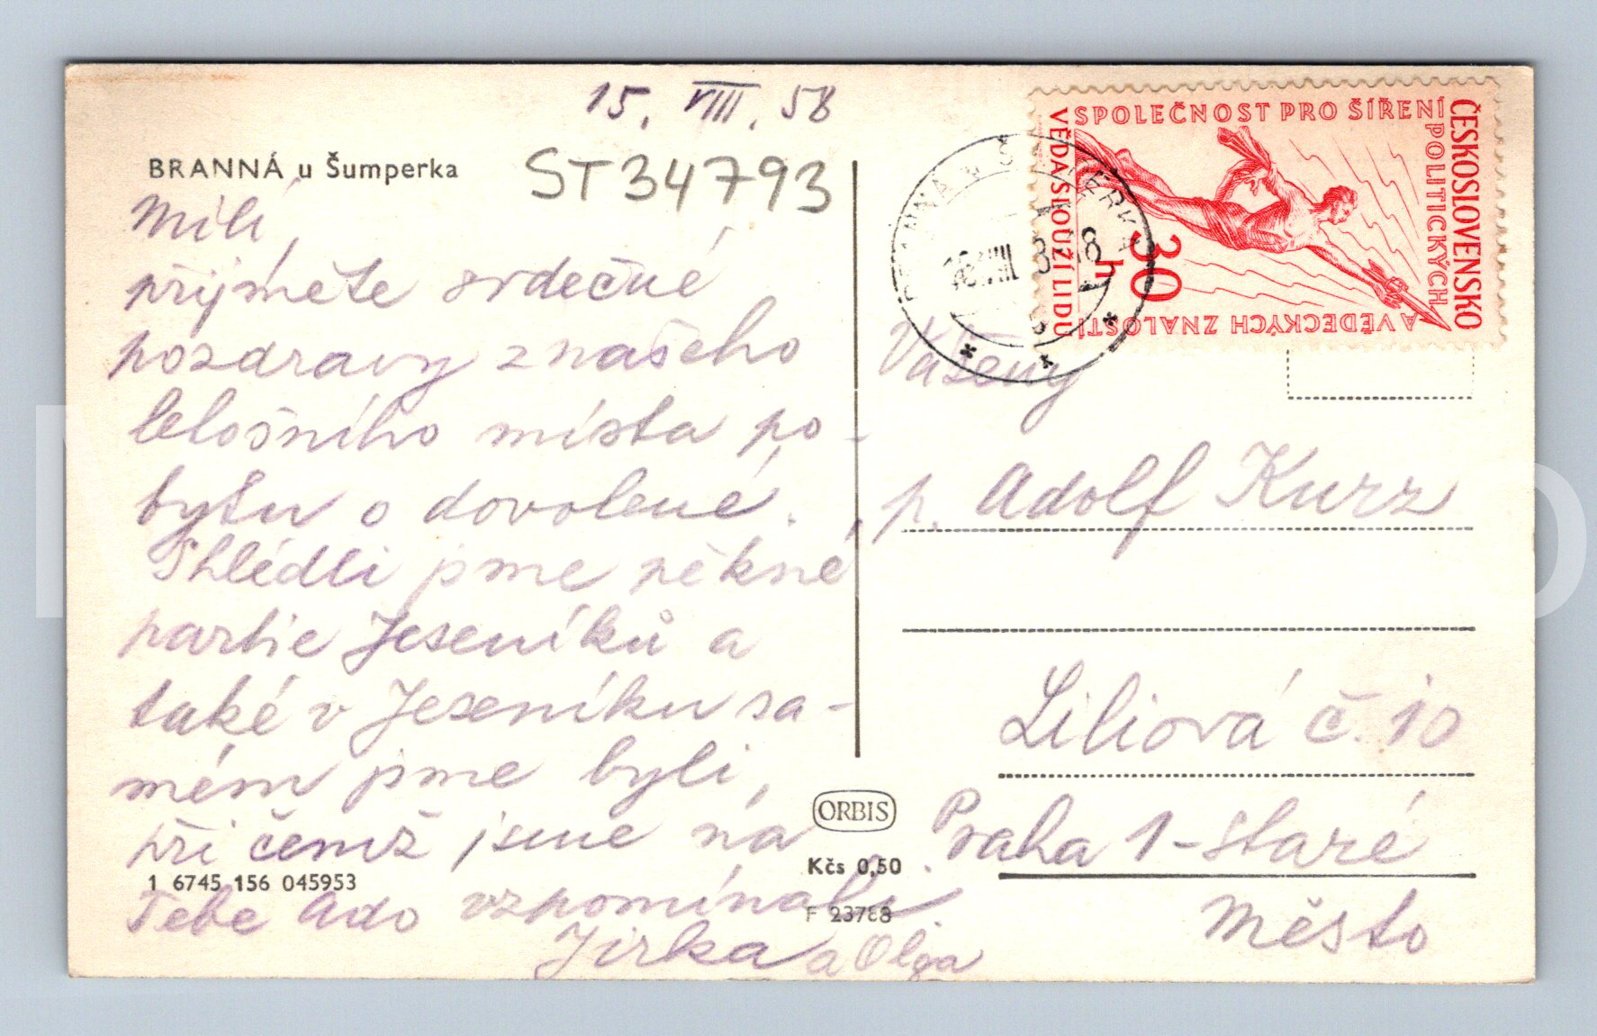 15. VIII. 58
BRANNÁ u Šumperka
ST34793
Milí,
přijměte srdečné
pozdravy z našeho
letošního místa po-
bytu o dovolené.
Shlédli jsme pěkné
partie Jeseníků a
také v Jeseníku sa-
mém jsme byli,
při čemž jsme na
Tebe Ado vzpomínali.
Jirka a Olga
1 6745 156 045953
ORBIS
Kčs 0,50
F 23788
ČESKOSLOVENSKO
SPOLEČNOST PRO ŠÍŘENÍ
POLITICKÝCH
A VĚDECKÝCH ZNALOSTÍ
VĚDA SLOUŽÍ LIDU
30 h
BRANNÁ U ŠUMPERKA
Vážený
p. Adolf Kurz
Liliová č. 10
Praha 1-Staré
Město